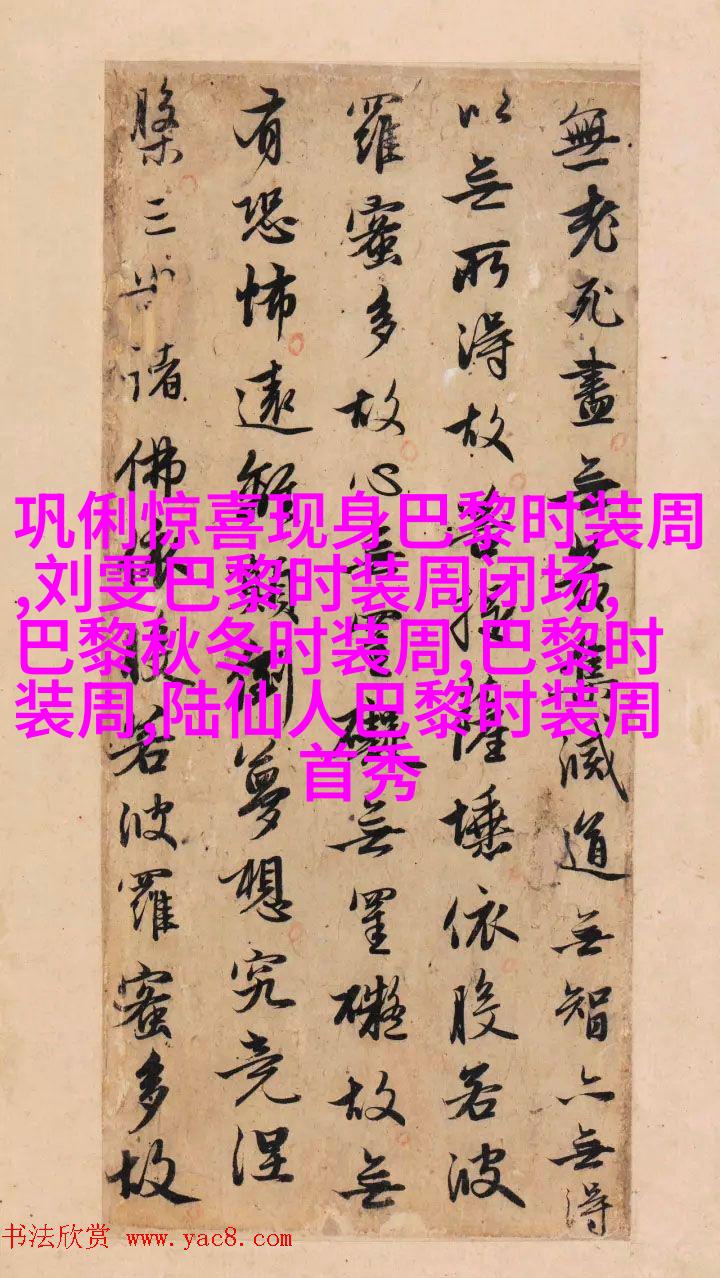 無老死盡無苦集滅道無智亦無得
以無所得故菩提薩埵依般若波
羅蜜多故心無罣礙無罣礙故無
有恐怖遠離顛倒夢想究竟涅
槃三世諸佛依般若波羅蜜多故
巩俐惊喜现身巴黎时装周
,刘雯巴黎时装周闭场,
巴黎秋冬时装周,巴黎时
装周,陆仙人巴黎时装周
首秀
书法欣赏 www.yac8.com